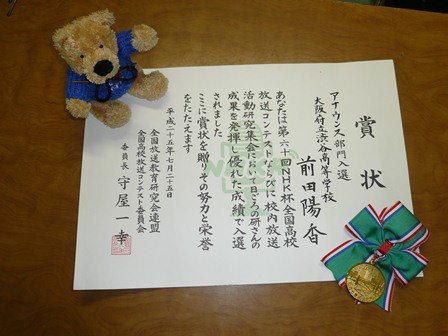 賞状
アナウンス部門入選
大阪府立渋谷高等学校
前田陽香
あなたは第六十回NHK杯全国高校
放送コンテストならびに校内放送
活動研究集会において日ごろの研さんの
成果を発揮し優れた成績で入選
されました
ここに賞状を贈りその努力と栄誉
をたたえます
平成二十五年七月二十五日
全国放送教育研究会連盟
全国高校放送コンテスト委員会
委員長 守屋一幸